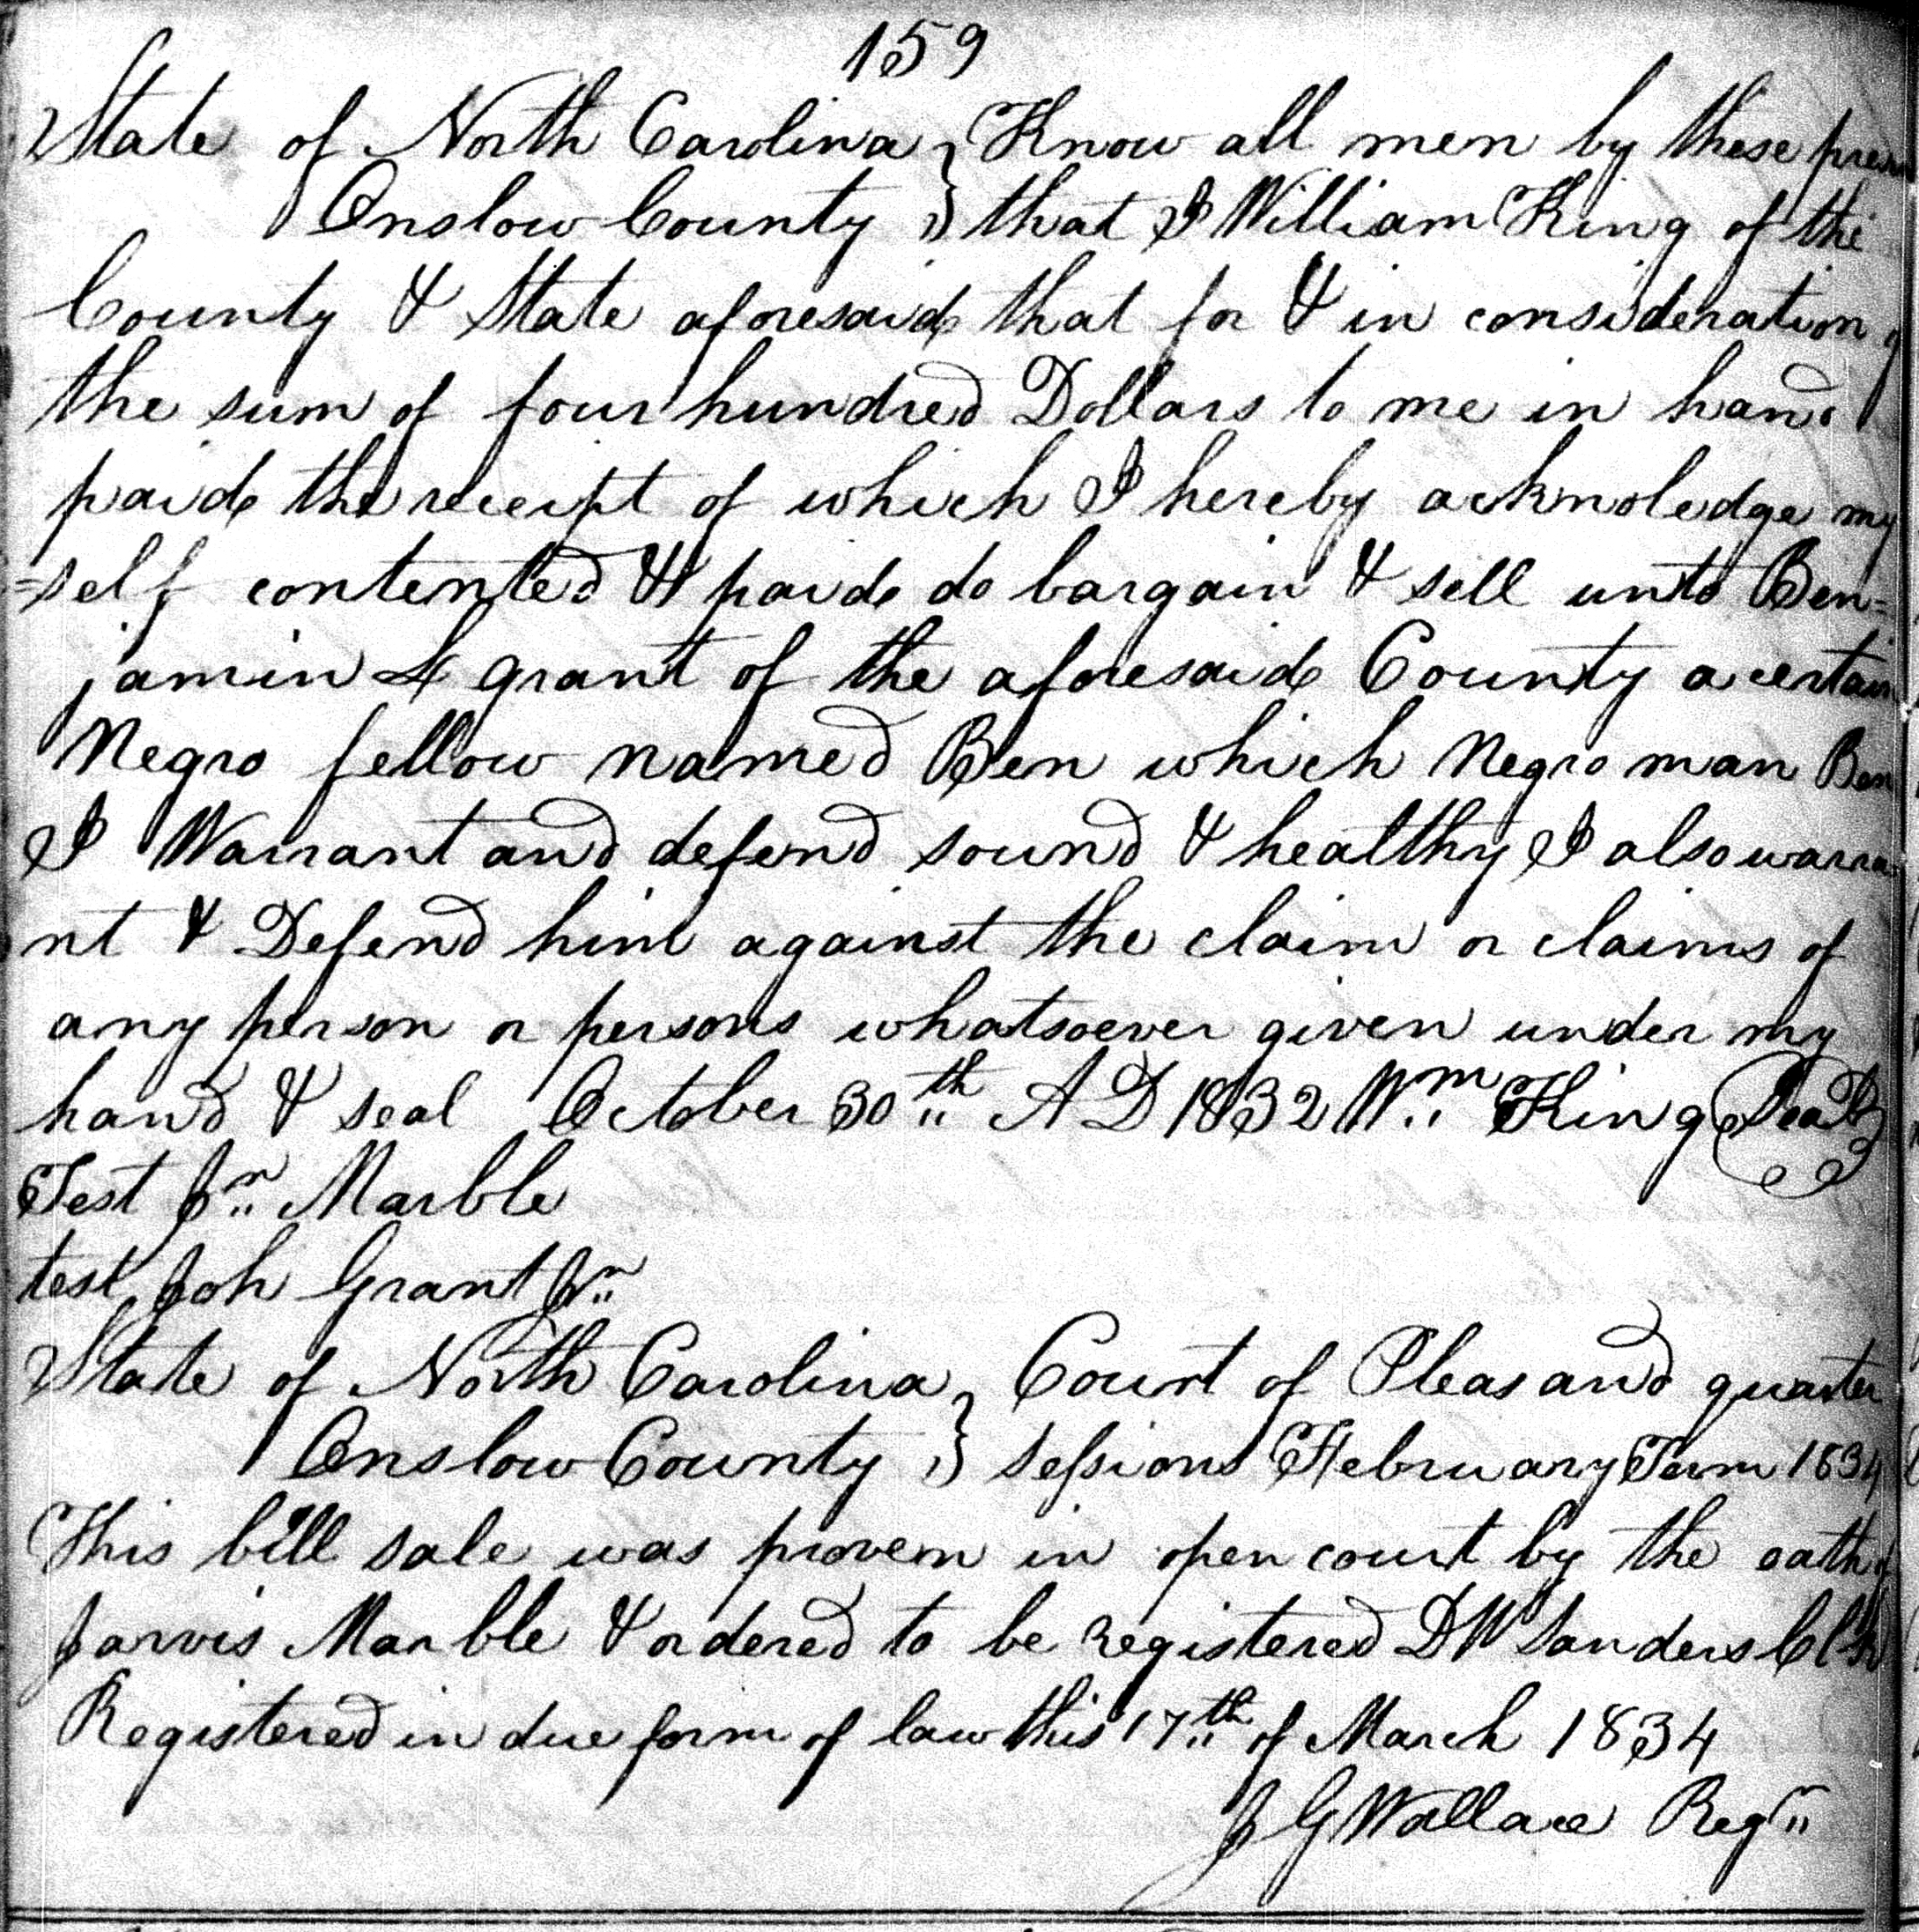 159
State of North Carolina } Know all men by these
Onslow County } that I William King of the
County & State aforesaid that for & in consideration
the sum of four hundred Dollars to me in hand
paid the receipt of which I hereby acknoledge my
=self contented & paid do bargain & sell unto Ben=
jamin L grant of the aforesaid County a certain
Negro fellow named Ben which Negro man Ben
I Warrant and defend sound & healthy I also warra
nt & Defend him against the claim or claims of
any person or persons whatsoever given under my
hand & seal October 30th A D 1832 Wm King Seal
Test Jr Marble
test Joh Grant Jr
State of North Carolina } Court of Pleas and quarter
Onslow County } Sessions February Term 1834
This bill sale was proven in open court by the oath of
Jarvis Marble & ordered to be registered D W Sanders
Registered in due form of law this 17th of March 1834
J G Wallace Regr